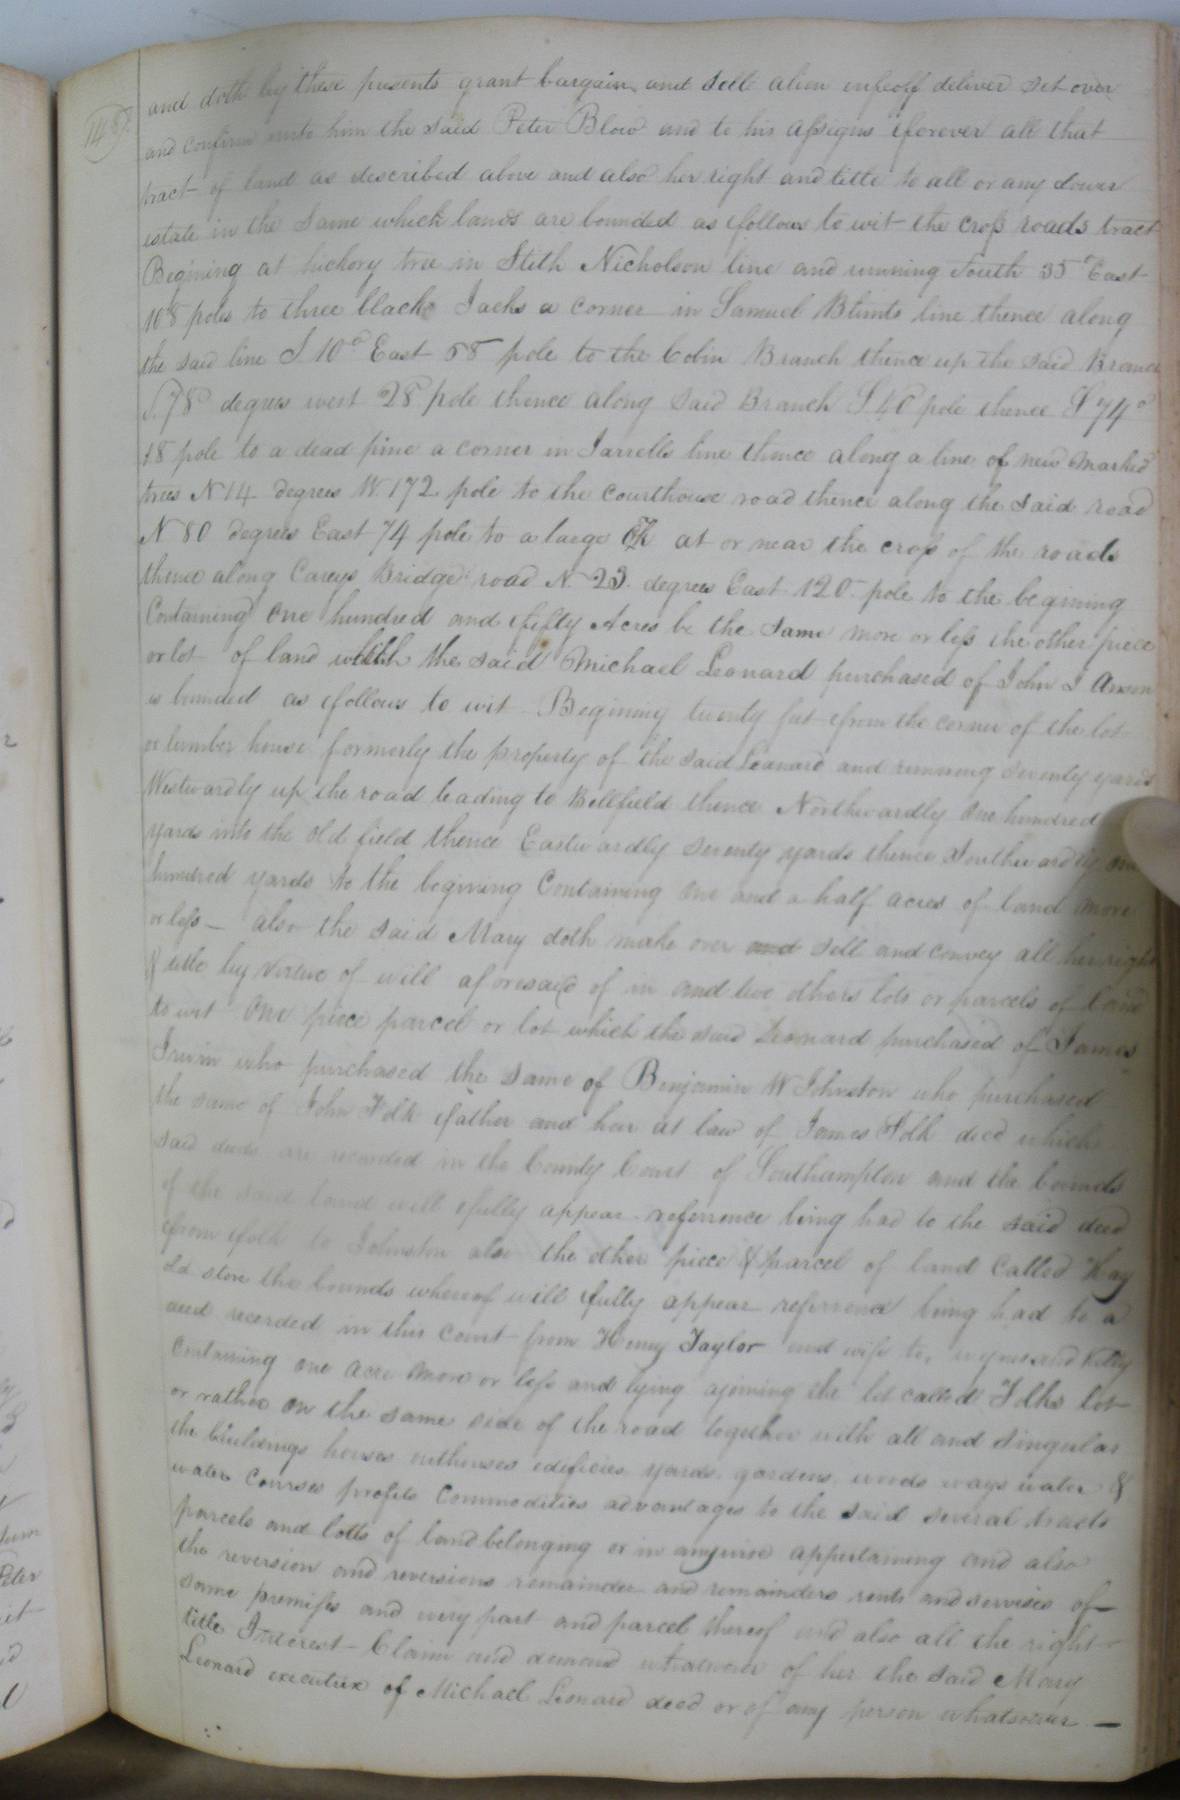 and doth by these presents grant bargain and sell alien enfeoff deliver set over
and confirm unto him the said Peter Blow and to his assigns forever all that
tract of land as described above and also her right and title to all or any dower
estate in the same which lands are bounded as follows to wit the cross roads tract
Begining at hickory tree in Stith Nicholson line and running South 35° East
108 poles to three black Jacks a corner in Samuel Blunts line thence along
the said line S 10° East 58 pole to the Cobin Branch thence up the said Branch
S. 78 degrees west 28 pole thence along said Branch S 40 pole thence S 74°
18 pole to a dead pine a corner in Jarrells line thence along a line of new marked
trees N 14 degrees W. 172 pole to the courthouse road thence along the said road
N 80 degrees East 74 pole to a large at or near the cross of the roads
thence along Careys Bridge road N. 23. degrees East 120 pole to the begining
Containing one hundred and fifty Acres be the same more or less the other piece
or lot of land which the said Michael Leonard purchased of John J
is bounded as follows to wit Begining twenty feet from the corner of the lot
or lumber house formerly the property of the said Leonard and running seventy yards
Westwardly up the road leading to Bellfield thence Northwardly one hundred
yards into the old field thence Eastwardly seventy yards thence Southwardly one
hundred yards to the begining Containing one and a half acres of land more
or less — also the said Mary doth make over and sell and convey all her right
& title by virtue of will aforesaid of in and two others lots or parcels of land
to wit One piece parcel or lot which the said Leonard purchased of James
Irwin who purchased the same of Benjamin W Johnston who purchased
the same of John Folk father and heir at law of James Folk decd which
said deeds are recorded in the County Court of Southampton and the bounds
of the said land will fully appear reference being had to the said deed
from folk to Johnston also the other piece & parcel of land called Kay
old store the bounds whereof will fully appear referrence being had to a
deed recorded in this court from Henry Taylor and wife to and Kitty
Containing one acre more or less and lying ajoining the lot called Folks lot
or rather on the same side of the road together with all and singular
the buildings houses outhouses edificies yards gardens woods ways water &
water courses profits commodities advantages to the said several tracts
parcels and lotts of land belonging or in anywise appertaining and also
the reversion and reversions remainder and remainders rents and services of
same premises and every part and parcel thereof and also all the right
title Interest Claim and demand whatsoever of her the said Mary
Leonard executrix of Michael Leonard decd or of any person whatsoever —